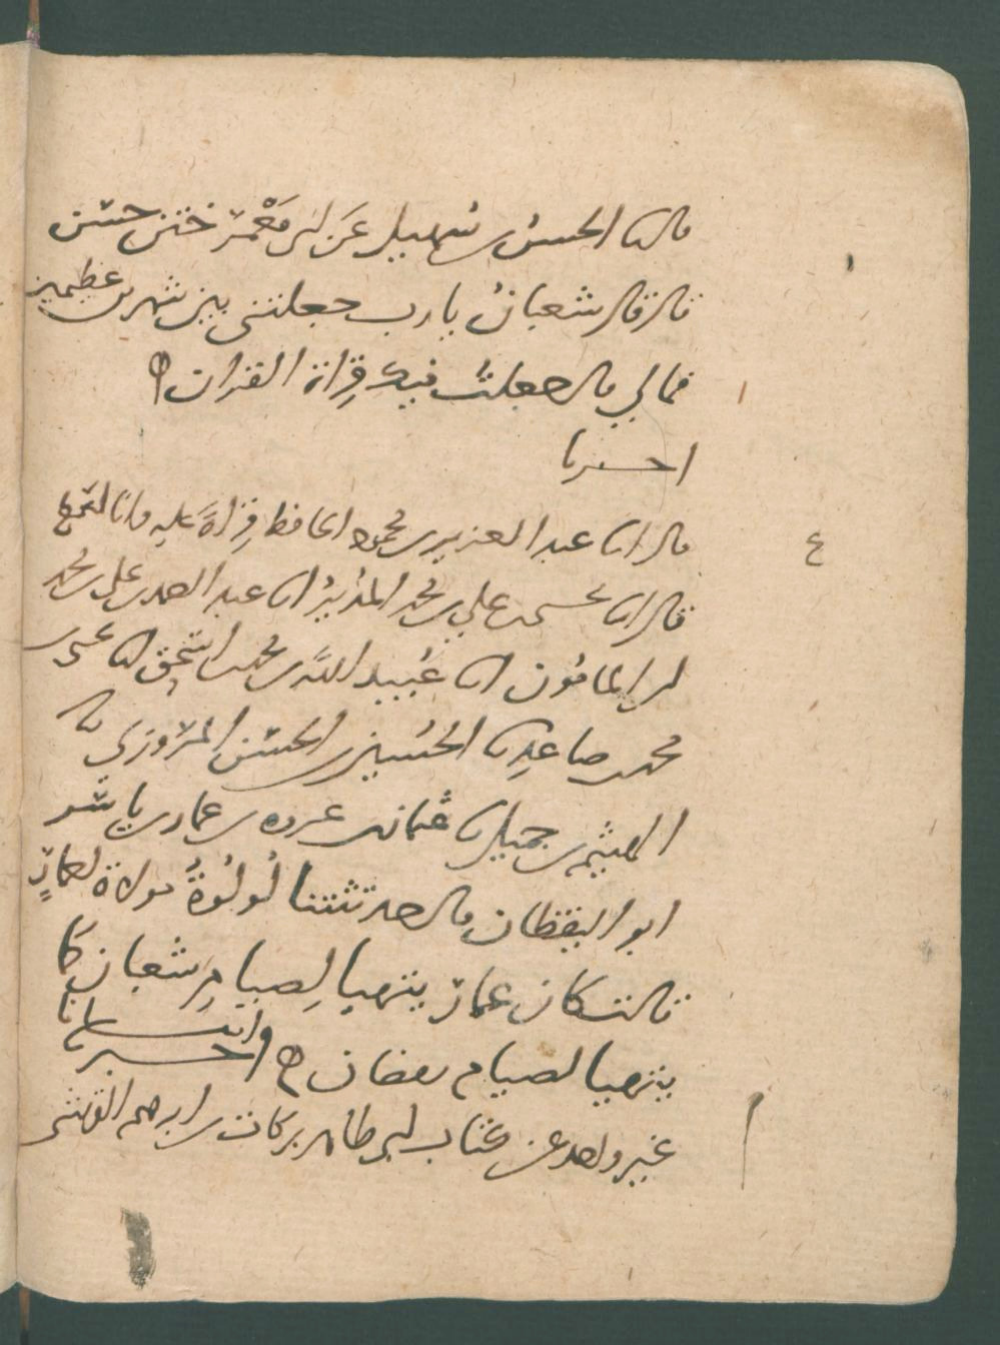 قال ثنا الحسن بن سهيل عن أبي معمر ختن حسن
قال قال شعبان يا رب جعلتني بين شهرين عظيمين
فما لي قال جعلت فيك قراة القران
اخبرنا
٤
قال انا عبد العزيز بن محمود الحافظ قراة عليه وانا اسمع
قال انا يحيى بن علي بن محمد المدير انا عبد الصمد بن علي بن محمد
ابن المامون انا عبيد الله بن محمد بن اسحق ثنا يحيى بن
محمد بن صاعد ثنا الحسين بن الحسن المروزي ثنا
الهيثم بن جميل ثنا عثمان بن عروه بن عمار بن ياسر
ابو اليقظان قال حدثتنا لولوة مولاة لعمار
قالت كان عمار يتهيا لصيام شعبان كما
يتهيا لصيام رمضان
وانبانا
اخبرنا
غير واحد عن كتاب ابي طاهر بركات بن ابرهيم القرشي